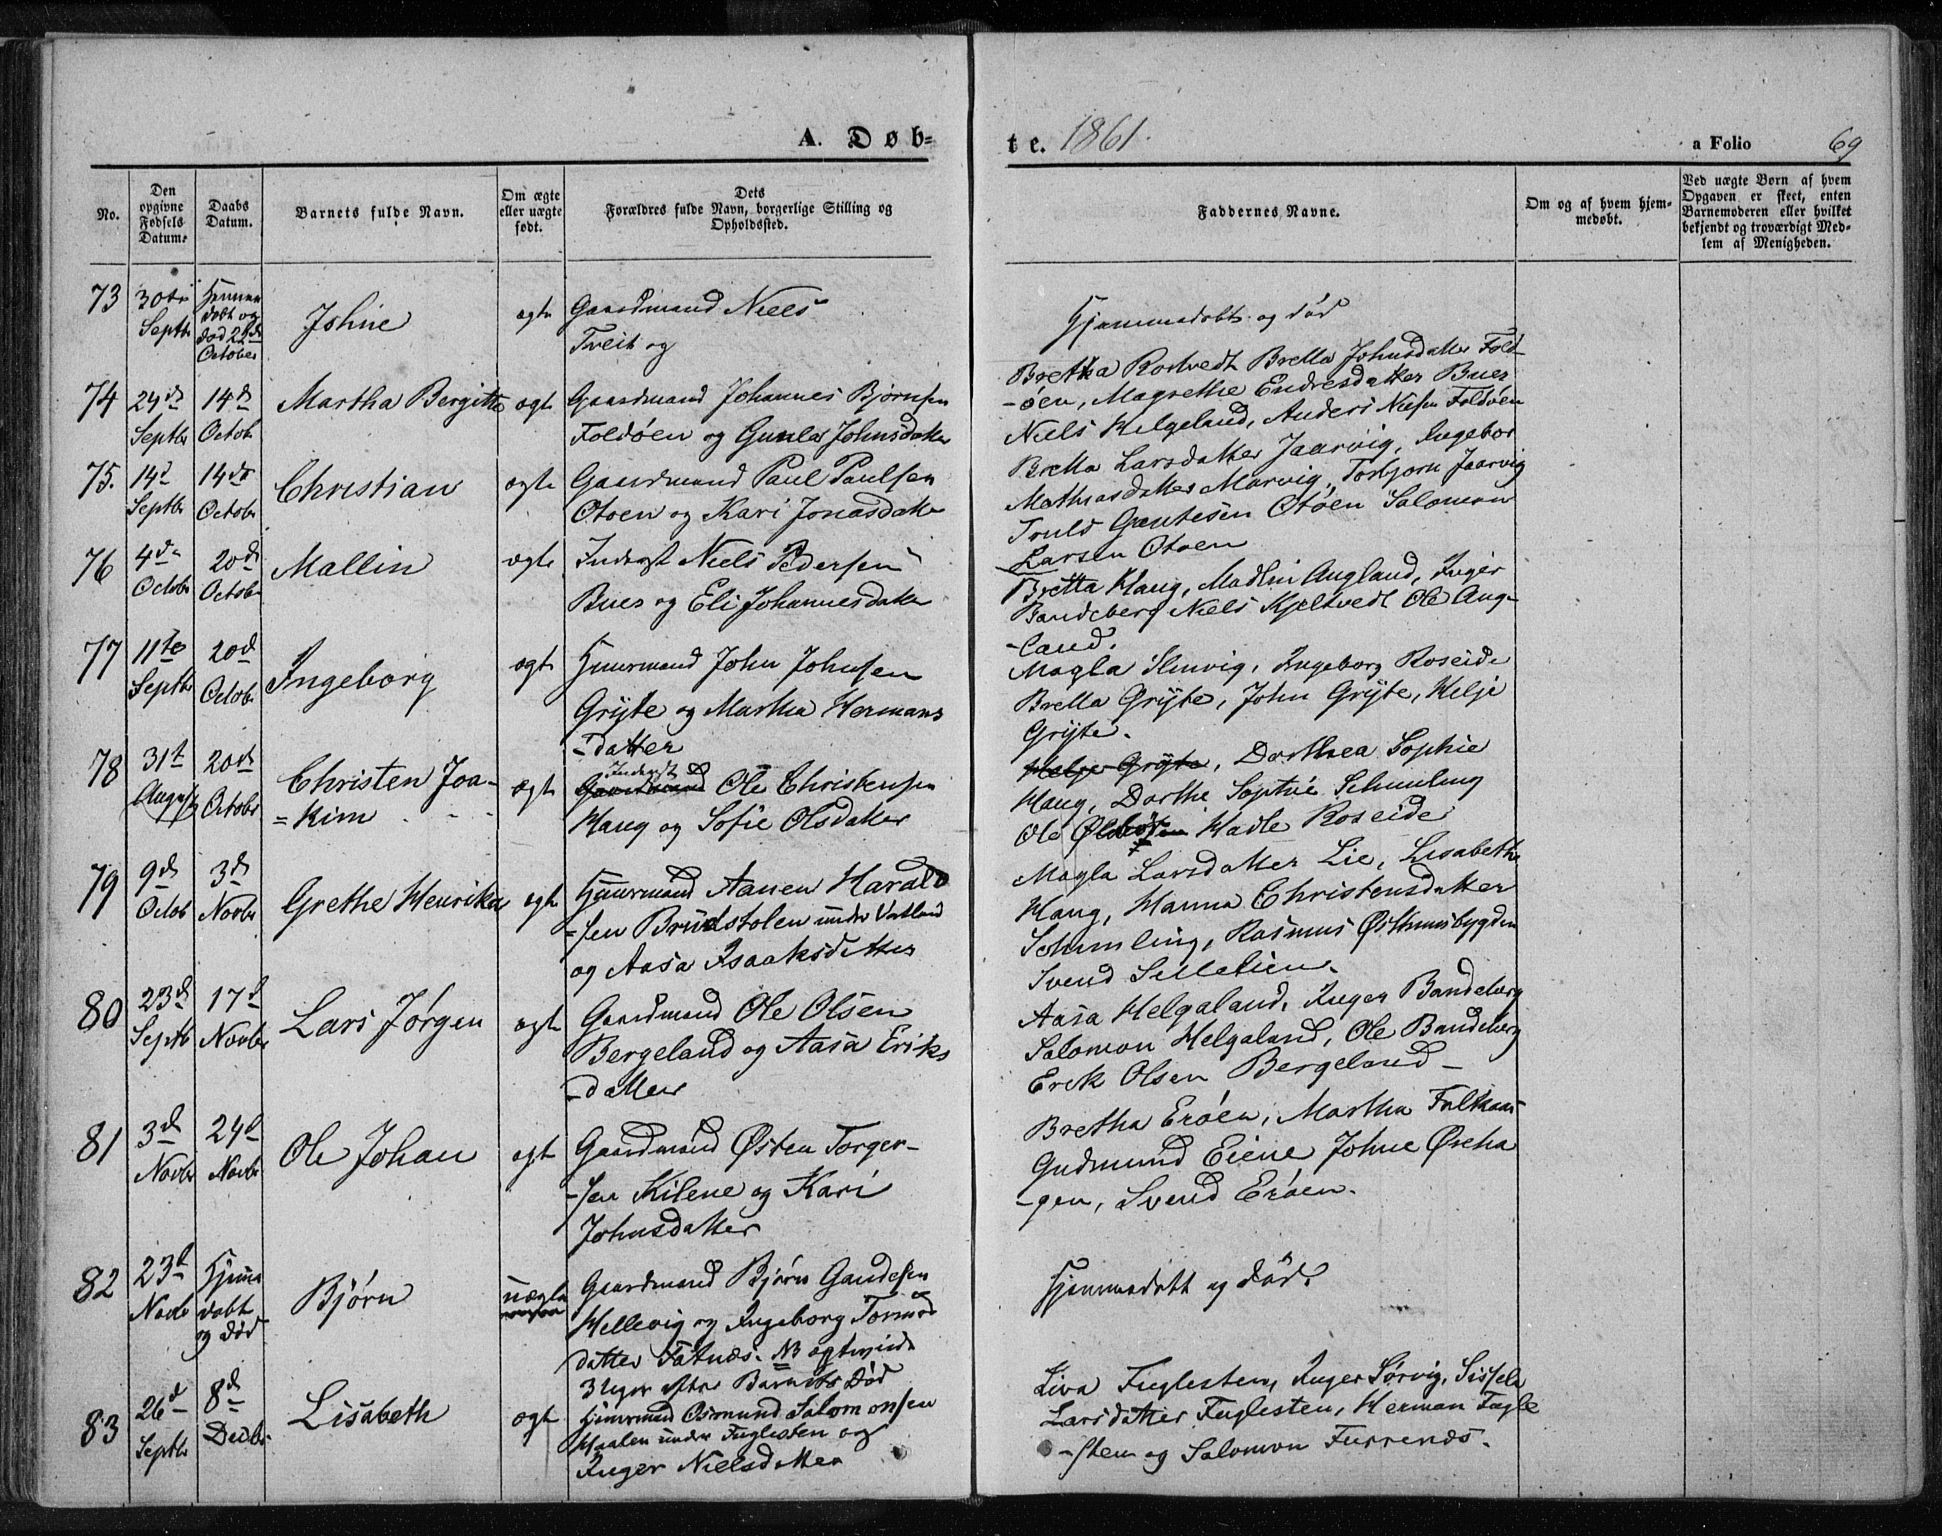 A. Døb=
te. 1861.
a Folio 69
No.
Den opgivne Fødsels Datum.
Daabs Datum.
Barnets fulde Navn.
Om ægte eller uægte født.
Dets Forældres fulde Navn, borgerlige Stilling og Opholdssted.
Faddernes Navne.
Om og af hvem hjemmedøbt.
Ved uægte Børn af hvem Opgaven er skeet, enten Barnemoderen eller hvilket bekjendt og troværdigt Medlem af Menigheden.
73 30te Septbr Hjemmedøbt og død 22de October Johne ægte Gaardmand Niels
Tveit og
Hjemmedøbt og død
74 29d Septbr 14d Octob Martha Bergitte ægte Gaardmand Johannes Bjørnsen
Foldøen og Gunla Johnsdatter
Bretha Rostvedt Bretta Johnsdatter Fold-
-øen, Magrethe Endresdatter Bues
Niels Helgeland, Anders Nielsen Foldøen
75. 14d Septbr 14de Octobr Christian ægte Gaardmand Paul Paulsen
Otøen og Kari Jonasdatter
Bretta Larsdatter Jaarvig, Ingebor
Mathiasdatter Marvig, Torbjørn Jaarvig
Truls Gautesen Otøen Salomon
Larsen Otøen
76 4de Octobr 20d Octobr Mallin ægte Inderst Niels Pedersen
Bues og Eli Johannesdatter
Bretta Haug, Madlin Augland, Inger
Bandeberg Niels Kjeltvedt Ole Aug-
-land.
77 11te Septbr 20d Octobr Ingeborg ægte Huusmand John Johnsen
Gryte og Martha Hermans
-datter
Magla Slevig, Ingeborg Roseide
Bretta Gryte, John Gryte, Helje
Gryte.
78 31t August 20d Octobr Christen Joa-
=kim ægte Inderst
Gaardmand Ole Christensen
Haug og Sofie Olsdatter
Helje Gryte, Dorthea Sophie
Haug, Dorthe Sophie Schmling
Ole Hadle Roseide
79 9d Octob 3d Novbr Grethe Henrika ægte Huusmand Aanen Harald
-sen Brudstolen under Vatland
og Aasa Isaaksdatter
Magla Larsdatter Lie, Lisabeth
Haug, Hanna Christensdatter
Schmling, Rasmus Østhuusbygden
Svend
80 23d Septbr 17d Novbr Lars Jørgen ægte Gaardmand Ole Olsen
Bergeland og Aasa Eriks
-datter
Aasa Helgaland, Inger Bandeberg
Salomon Helgaland, Ole Bandeberg
Erik Olsen Bergeland
81 3d Novbr 24d Novbr Ole Johan ægt Gaardmand Østen Torger-
-sen Kilene og Kari
Johnsdatter
Bretha Erøen, Martha Falkaas
Gudmund Eiene Johne Øreha
-gen, Svend Erøen.
82 23d Novbr Hjemmedøbt og død Bjørn uægte Gaardmand Bjørn Gaudesen
Hellevig og Ingeborg Tormod
datter Fatnæs. NB
3 Uger efter Barnets Død
Hjemmedøbt og død.
83 26d Septbr 8d Decbr Lisabeth ægt Huusmand Osmund Salomonsen
Haalen under Fuglesten og
Inger Nielsdatter
Liva Fuglesten, Inger Sørvig, Sissela
Larsdatter Fuglesten, Herman Fugle
-sten og Salomon Furrenæs.